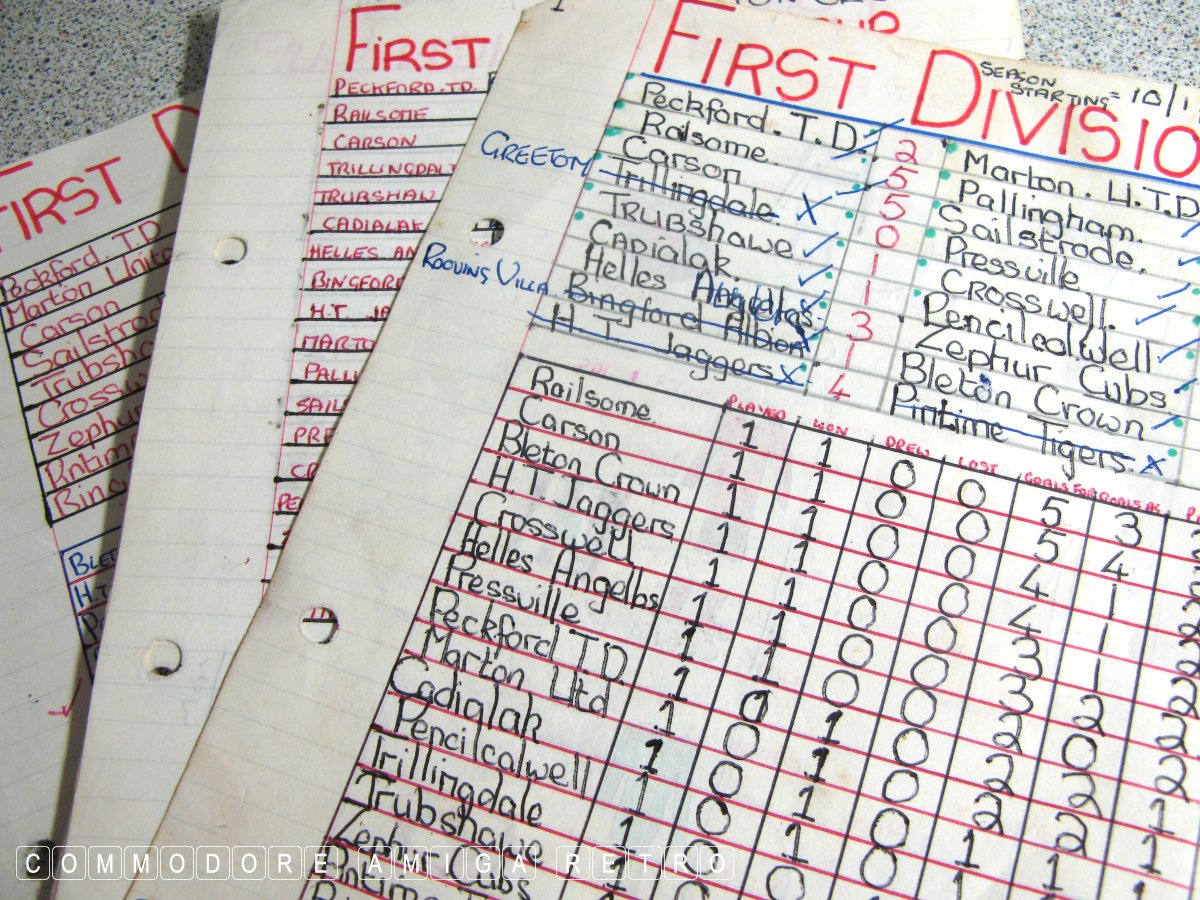 FIRST D
Peckford T.D
Marton Unite
Carson
Sailstrod
Trubsha
Crossw
Zephur
Pintim
Bing
BLET
H.T
FIRST
PECKFORD.TD.
RAILSOME
CARSON
TRILLINGDAL
TRUBSHAW
CADIALAK
HELLES AN
BINGFORD
H.T. JA
MARTO
PALLI
SAIL
PRE
CR
PE
1
FIRST DIVISIO
SEASON STARTING = 10/1
Peckford. T.D. 2 Marton. U.T.D
Ralsome. 5 Pallingham.
Carson 5 Sailstrode.
GREETOM Trillingdale X 0 Pressville
TRUBSHAWE 1 CROSSWELL.
CADIALAK. 1 Pencilcalwell
Helles Angelbs 3 Zephur Cubs
ROOVING VILLA Bingford Albion 1 Bleton Crown
H.T. Jaggers X 4 Pintime Tigers. X
PLAYED WON DREW LOST GOALS FOR GOALS AG P
Railsome. 1 1 0 0 5 3
Carson 1 1 0 0 5 4
Bleton Crown 1 1 0 0 4 1
H.T. Jaggers 1 1 0 0 4 1 2
Crosswell 1 1 0 0 3 1 2
Helles Angelbs 1 1 0 0 3 2 2
Pressville 1 1 0 0 2 0 2
Peckford T.D. 1 0 1 0 2 2 1
Marton Utd 1 0 1 0 2 2 1
Cadialak 1 0 1 0 1 1
Pencilcalwell 1 0 1 0
Trillingdale 1 0
Trubshawe 1
Zephur Cubs
Pintime T
COMMODORE AMIGA RETRO